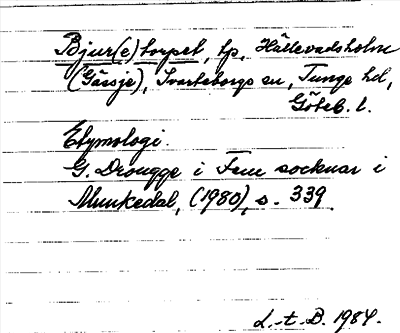 Bjur(e)torpet, tp, Hällevadsholm
(Gässje), Svarteborgs sn, Tunge hd,
Göteb. l.
Etymologi.
G. Drougge i Fem socknar i
Munkedal, (1980), s. 339.
L.-t. B. 1984.